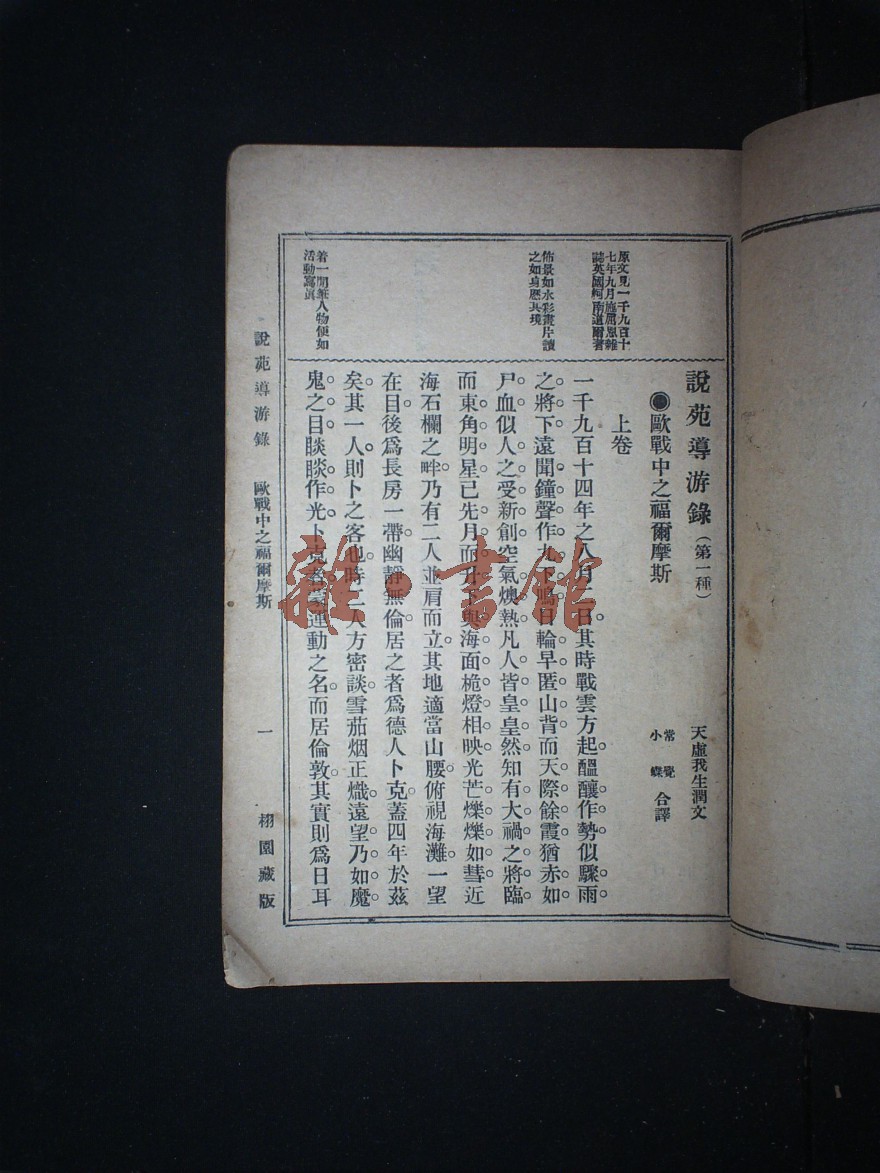 說苑導游錄(第一種)
天虛我生潤文
●歐戰中之福爾摩斯
常覺
小蝶
合譯
上卷
原文見一千九百十
七年九月施屈恩雜
誌英國柯南道爾著
一千九百十四年之八月二日其時戰雲方起醞釀作勢似驟雨
佈景如水彩畫片讀
之如身歷其境
之將下遠聞鐘聲作九下鳴日輪早匿山背而天際餘霞猶赤如
尸血似人之受新創空氣燠熱凡人皆皇皇然知有大禍之將臨
而東角明星已先月而升下與海面桅燈相映光芒爍爍如彗近
海石欄之畔乃有二人並肩而立其地適當山腰俯視海灘一望
在目後為長房一帶幽靜無倫居之者為德人卜克蓋四年於茲
着一閒筆人物便如
活動寫真
矣其一人則卜之客也時二人方密談雪茄烟正熾遠望乃如魔
鬼之目睒睒作光卜克者蒙運動之名而居倫敦其實則為日耳
說苑導游錄 歐戰中之福爾摩斯 一 栩園藏版
雜·書館